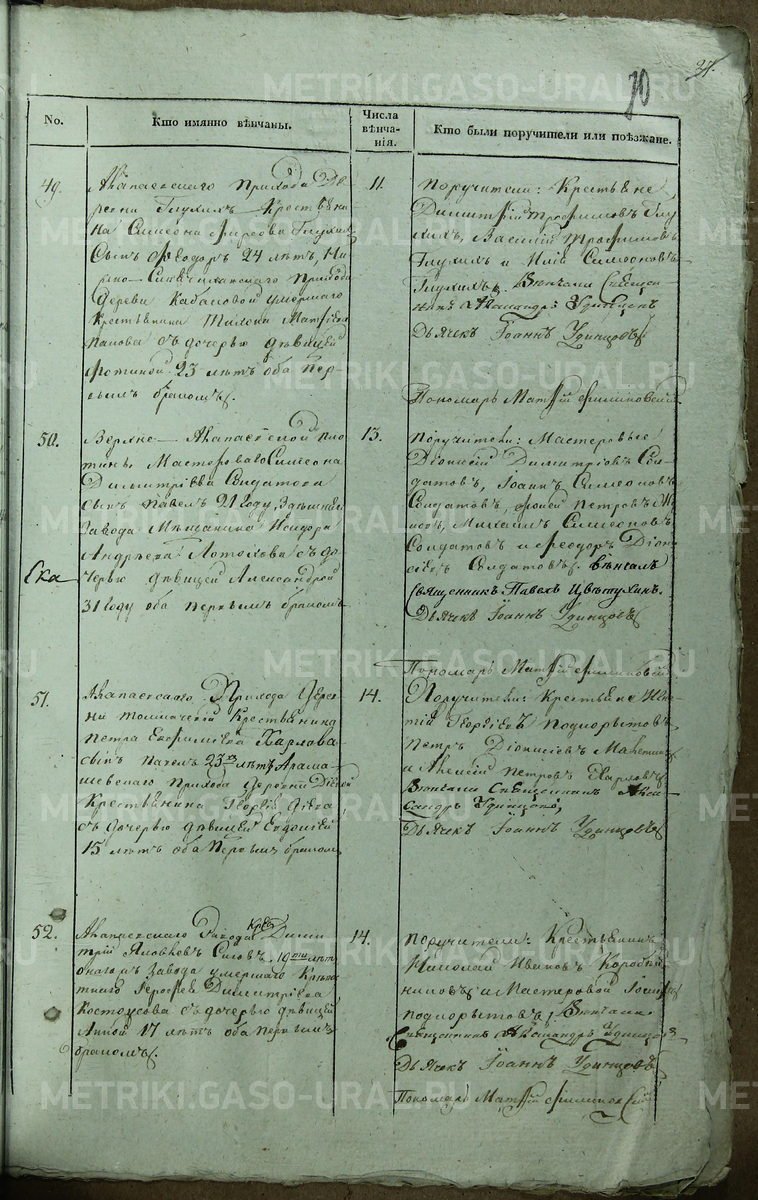 37.
70
No.
Кто имянно вѣнчаны.
Числа
вѣнча-
нія.
Кто были поручители или поѣзжане.
49.
Алапаевскаго Прихода Де
ревни Глухихъ Крестьяни
на Симеона Фирсова Глухихъ
Сынъ Ѳеодоръ 24 лѣтъ, Ни
жно-Синячихинскаго Прихода
Деревни Кабаковой умершаго
Крестьянина
Панова съ дочерью дѣвицей
Фотиной 23 лѣтъ оба пер
вымъ бракомъ.
11.
Поручители: Крестьяне
Димитрій Трофимовъ Глу
хихъ, Василій Трофимовъ
Глухихъ и Илія Симеоновъ
Глухихъ. Вѣнчали Священ
никъ Александръ Удинцевъ
Дьячекъ Іоаннъ Удинцовъ
Пономарь Матѳій Филиповскій
50.
Верхне-Алапаевской Пло
тины Мастероваго Симеона
Димитріева Солдатова
сынъ Павелъ 21 году, Здѣшняго
Завода Мѣщанина Исидора
Андрѣева съ до
черью дѣвицей Александрой
31 году оба первымъ бракомъ
Ека
13.
Поручители: Мастеровые
Діонисій Димитріевъ Сол
датовъ, Іоаннъ Симеоновъ
Солдатовъ, Петровъ
Михаилъ Симеоновъ
Солдатовъ и Ѳеодоръ Діони
сіевъ Солдатовъ. Вѣнчали
Священникъ Павелъ Цвѣтухинъ.
Дьячекъ Іоаннъ Удинцовъ
Пономарь Матѳій Филиповскій
51.
Алапаевскаго Прихода Дерев
ни Толмачевой Крестьянина
Петра Евфиміева Харлова
сынъ Павелъ 23хъ лѣтъ Арама
шевскаго Прихода Деревни
Крестьянина Георгія
съ дочерью дѣвицей Евдокіей
15 лѣтъ оба первымъ бракомъ
14.
Поручители: Крестьяне
Георгіевъ Подкорытовъ
Петръ Діонисіевъ
и Алексій Петровъ Харловъ
Вѣнчали Священникъ Алек
сандръ Удинцовъ,
Дьячекъ Іоаннъ Удинцовъ
52.
Алапаевскаго Завода Крѣ Дими
трій Яковлевъ 19ти лѣтъ
онаго жъ Завода умершаго
Ерофѣя Димитріева
Костоусова съ дочерью дѣвицей
Анной 17 лѣтъ оба первымъ
бракомъ.
14.
Поручители: Крестьянинъ
Николай Ивановъ Коробей
никовъ и Мастеровой
Подкорытовъ, Вѣнчали
Священникъ Александръ Удинцовъ
Дьячекъ Іоаннъ Удинцовъ
Пономарь Матѳій Филиповскій
METRIKI.GASO-URAL.RU